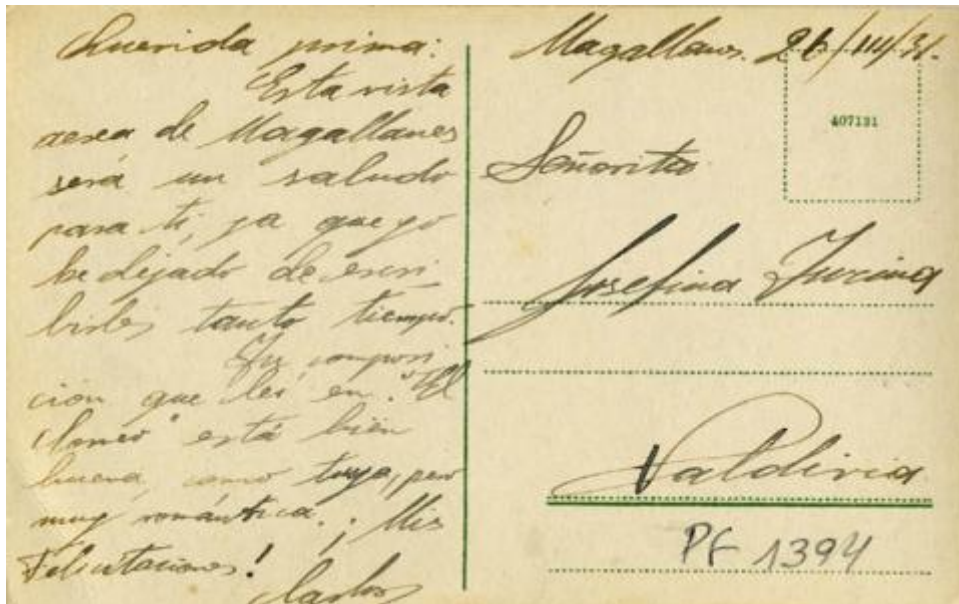 Querida prima:
Esta vista
aerea de Magallanes
será un saludo
para ti, ya que yo
he dejado de escri-
birles tanto tiempo.
Tu composi-
ción que leí en "El
" está bien
buena, como tuya, pero
muy romántica. ¡Mis
Felicitaciones!
Carlos
Magallanes. 26/III/31.
407131
Señorita
Josefina
Valdivia
PF 1394